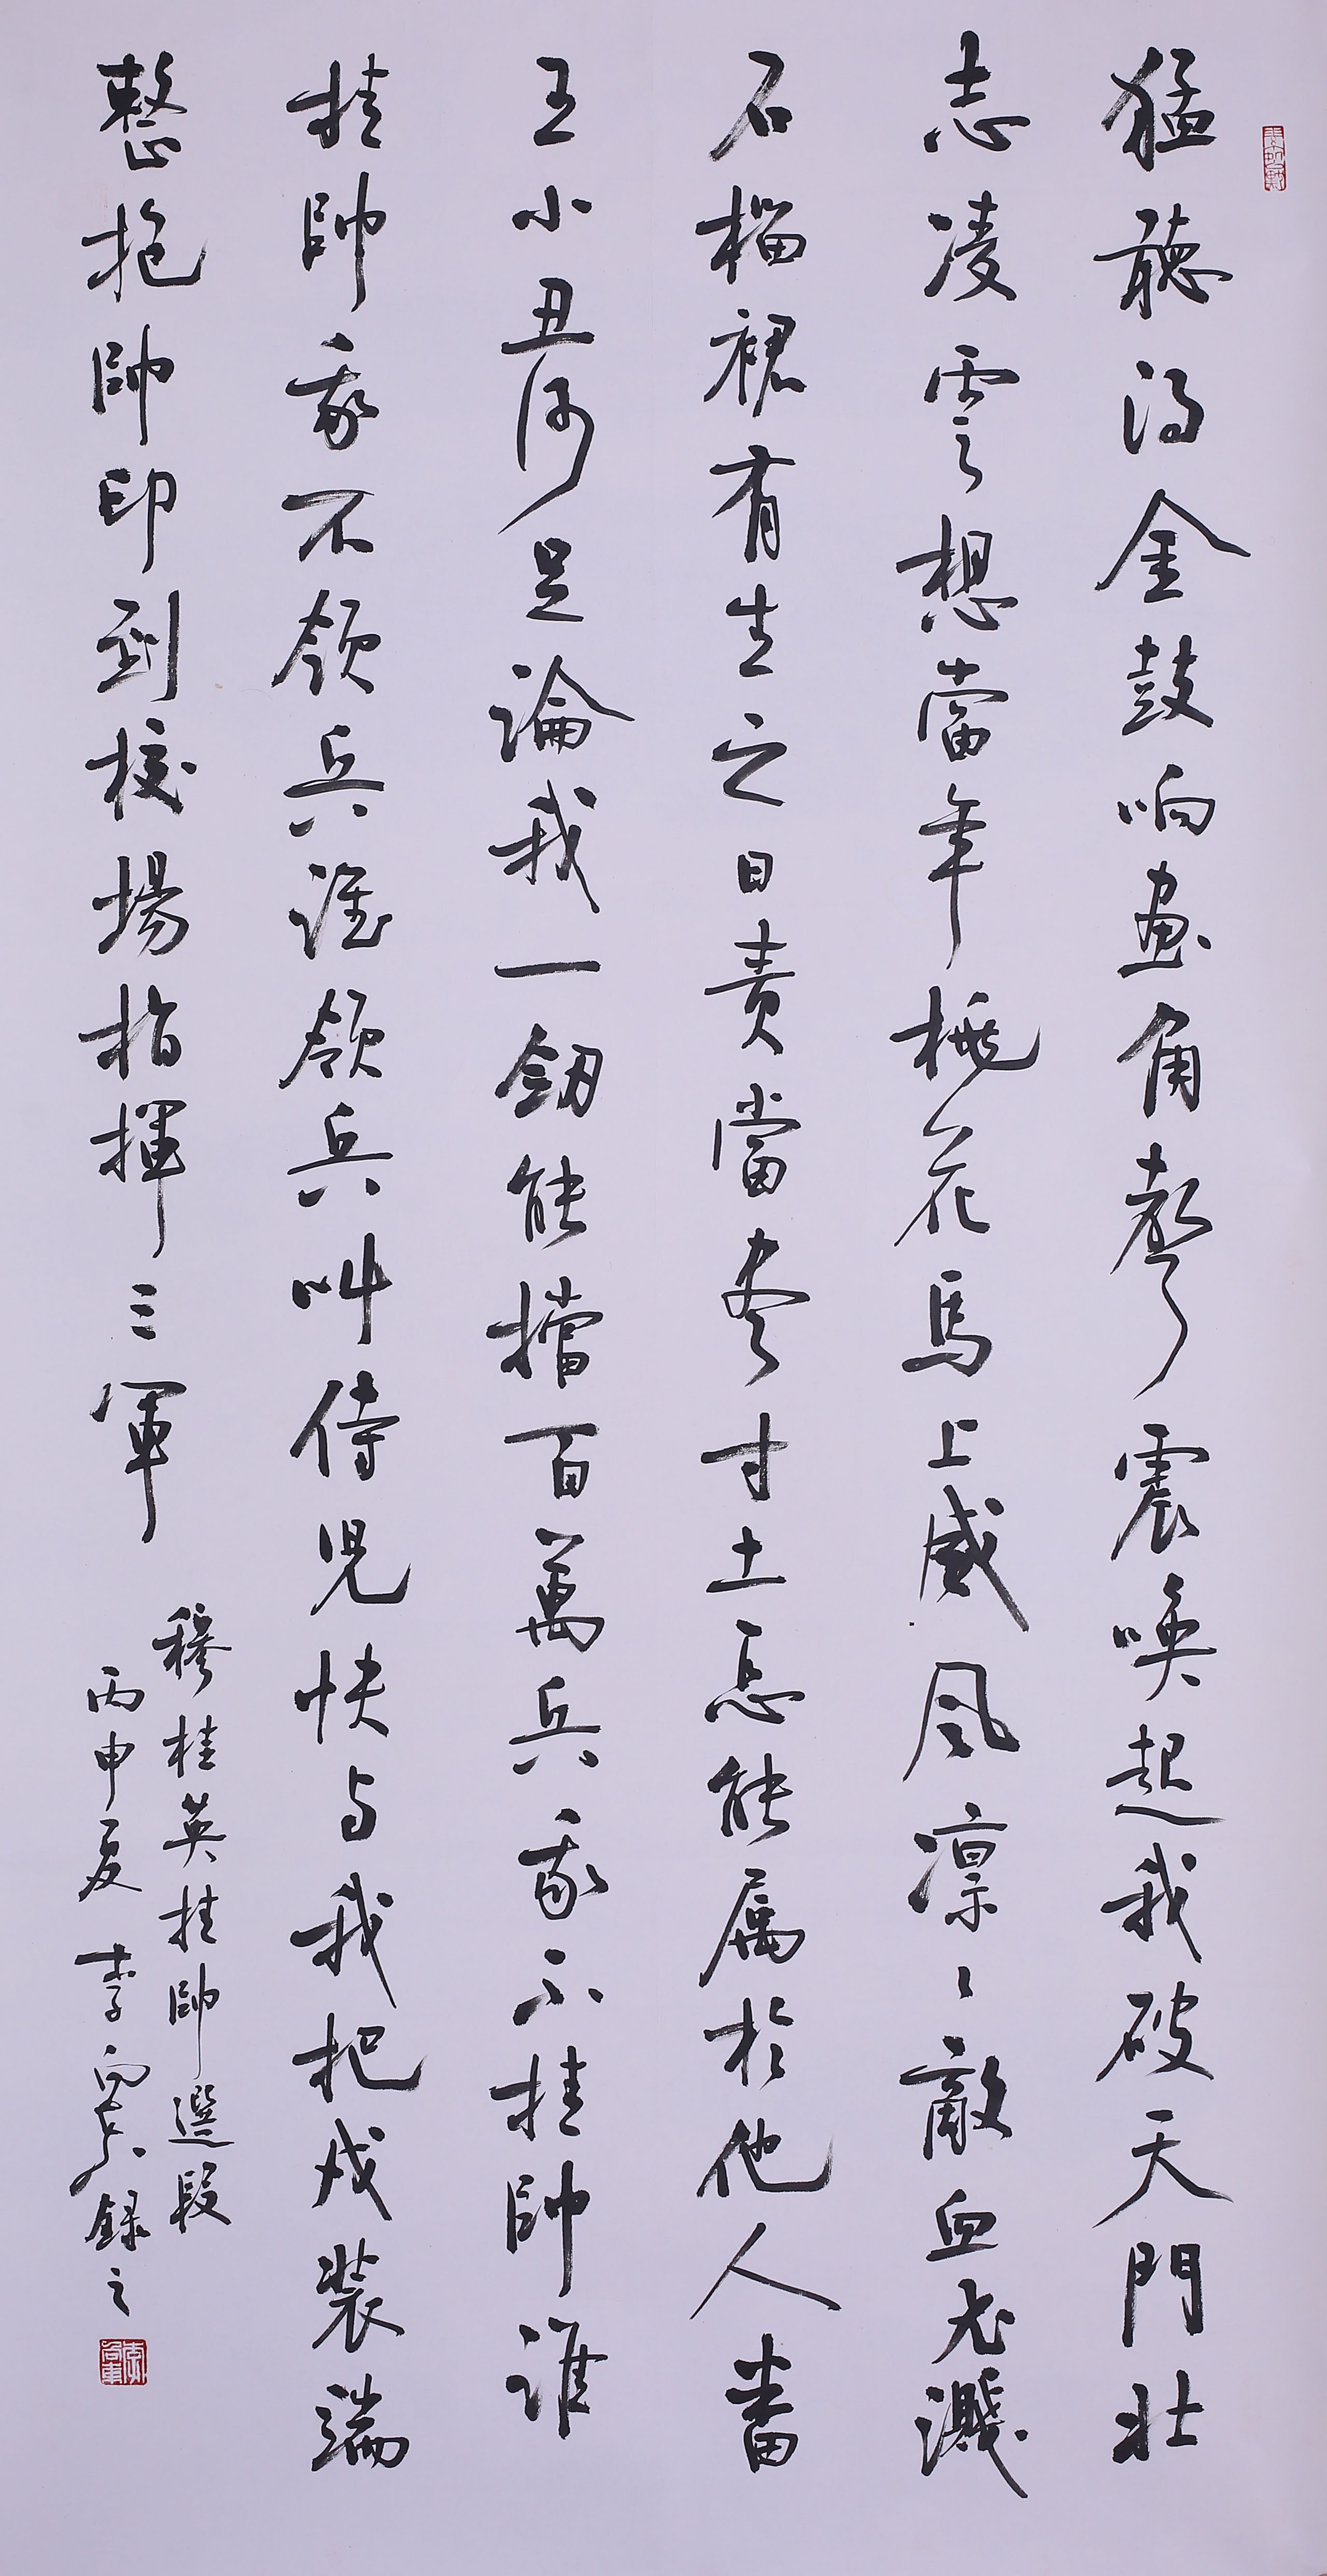 猛聽得金鼓响画角聲震喚起我破天門壮
志凌雲想當年桃花馬上威風凛〻敵血飛濺
石榴裙有生之日責當尽寸土怎能属於他人番
王小丑何足論我一劔能擋百萬兵我不挂帥誰
挂帥我不領兵誰領兵叫侍兒快与我把戎装端
整抱帥印到校場指揮三軍
穆桂英挂帥選段
丙申夏 李向東録之